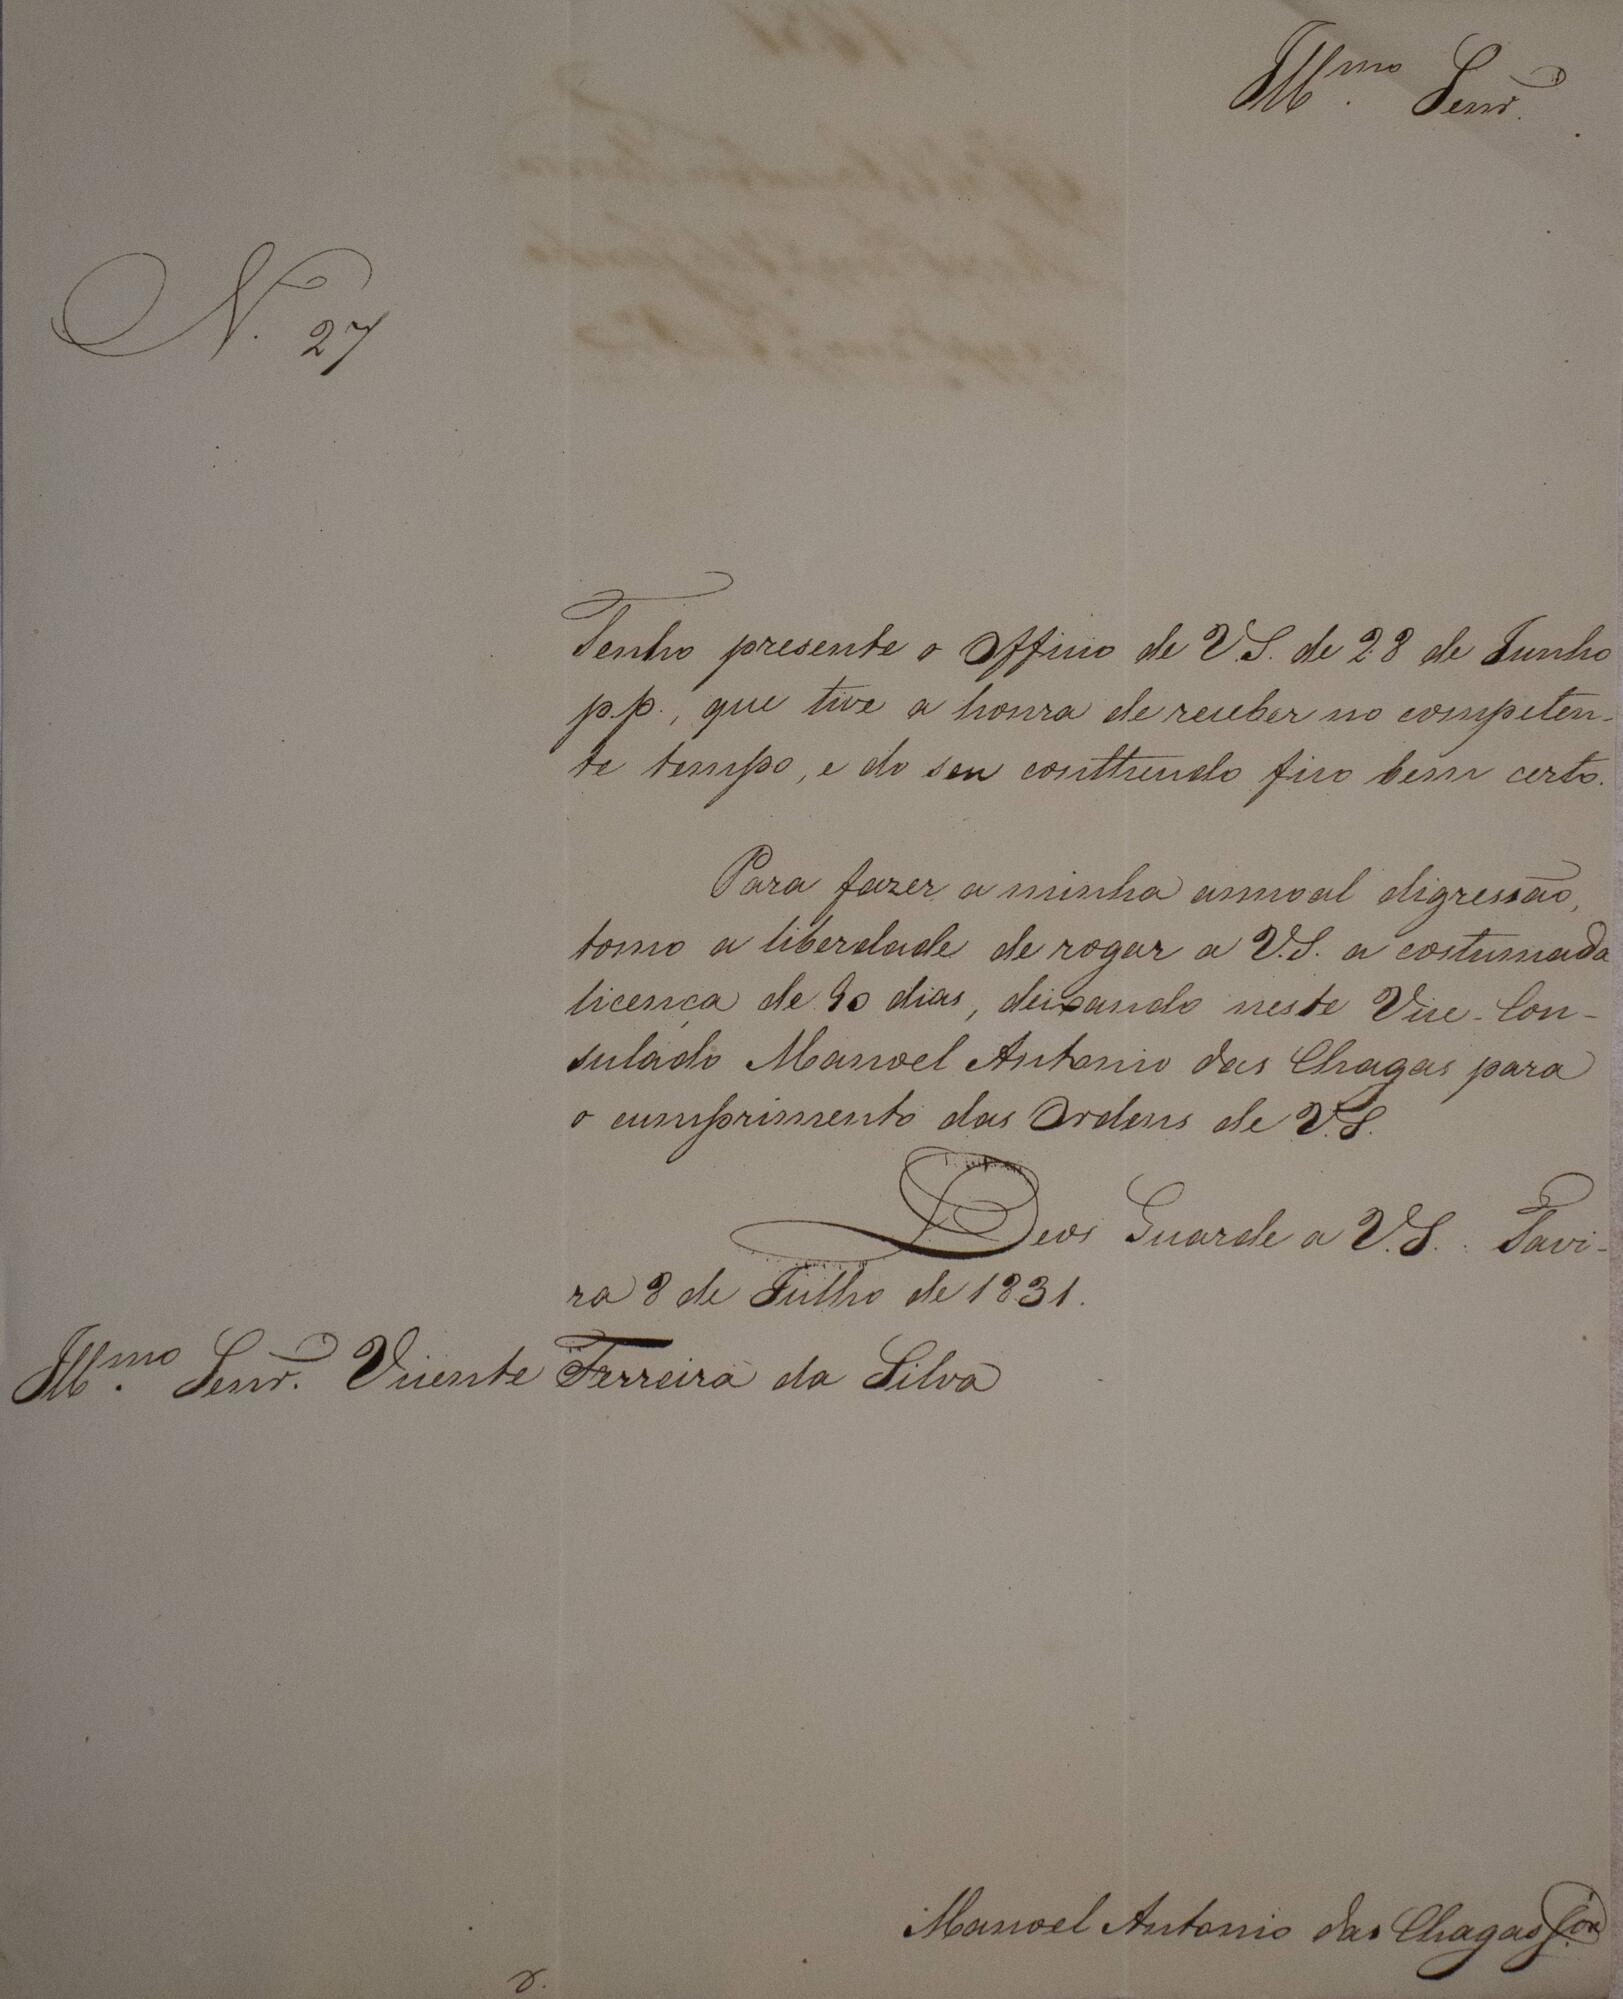 Ill.mo Senr.
N. 27
Tenho presente o Officio de V.S. de 28 de Junho
p.p., que tive a honra de receber no competen-
te tempo, e do seu conttheudo fico bem certo.
Para fazer a minha annoal digressão,
tomo a liberdade de rogar a V.S. a costumada
licença de 90 dias, deixando neste Vice-Con-
sulado Manoel Antonio das Chagas para
o cumprimento das Ordens de V.S.
Deos Guarde a V.S. Tavi-
ra 8 de Julho de 1831.
Ill.mo Senr. Vicente Ferreira da Silva
Manoel Antonio das Chagas